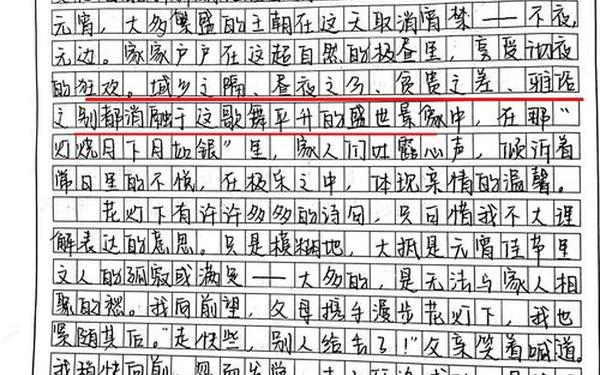 元宵，大多繁盛的王朝在这天取消宵禁——不夜，
无边。家家户户在这超自然的极昼里，享受彻夜
的狂欢。城乡之隔、昼夜之分、贫贵之差、雅俗
之别都消融于这歌舞平升的盛世景象中，在那“
灯烧月下月如银”里，家人们吐露心声，倾诉着
常日里的不悦，在极乐之中，体现亲情的温馨。
花灯下有许许多多的诗句，只可惜我不大理
解表达的意思。只是模糊地，大抵是元宵佳节里
文人的孤寂或满足——大多的，是无法与家人相
聚的愁。我向前望，父母携手漫步花灯下，我也
紧随其后。“走快些，别人给去了！”父亲笑着喊道。
我稍快向前，